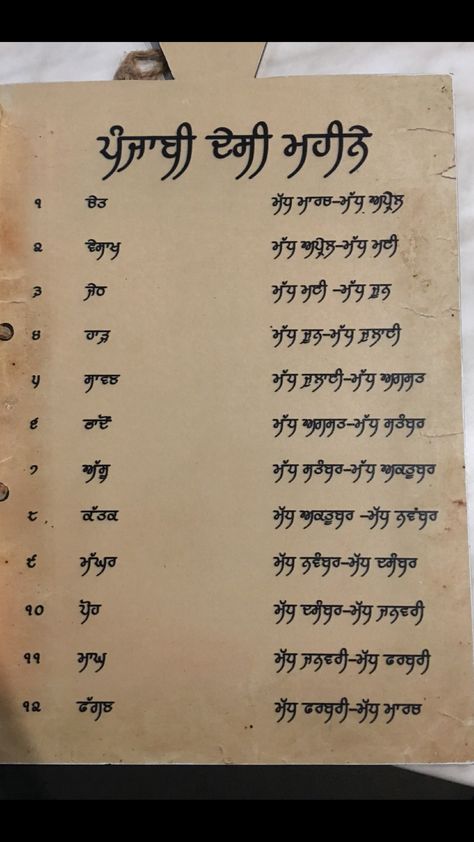 ਪੰਜਾਬੀ ਦੇਸੀ ਮਹੀਨੇ
੧ ਚੇਤ ਮੱਧ ਮਾਰਚ-ਮੱਧ ਅਪ੍ਰੈਲ
੨ ਵੈਸਾਖ ਮੱਧ ਅਪ੍ਰੈਲ-ਮੱਧ ਮਈ
੩ ਜੇਠ ਮੱਧ ਮਈ -ਮੱਧ ਜੂਨ
੪ ਹਾੜ ਮੱਧ ਜੂਨ-ਮੱਧ ਜੁਲਾਈ
੫ ਸਾਵਣ ਮੱਧ ਜੁਲਾਈ-ਮੱਧ ਅਗਸਤ
੬ ਭਾਦੋਂ ਮੱਧ ਅਗਸਤ-ਮੱਧ ਸਤੰਬਰ
੭ ਅੱਸੂ ਮੱਧ ਸਤੰਬਰ-ਮੱਧ ਅਕਤੂਬਰ
੮ ਕੱਤਕ ਮੱਧ ਅਕਤੂਬਰ -ਮੱਧ ਨਵੰਬਰ
੯ ਮੱਘਰ ਮੱਧ ਨਵੰਬਰ-ਮੱਧ ਦਸੰਬਰ
੧੦ ਪੋਹ ਮੱਧ ਦਸੰਬਰ-ਮੱਧ ਜਨਵਰੀ
੧੧ ਮਾਘ ਮੱਧ ਜਨਵਰੀ-ਮੱਧ ਫਰਬਰੀ
੧੨ ਫੱਗਣ ਮੱਧ ਫਰਬਰੀ-ਮੱਧ ਮਾਰਚ